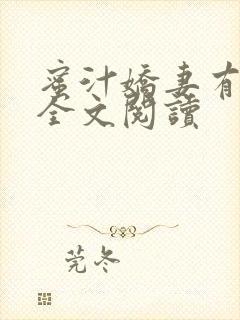 蜜汁嬌妻有
全文閱讀
莞冬